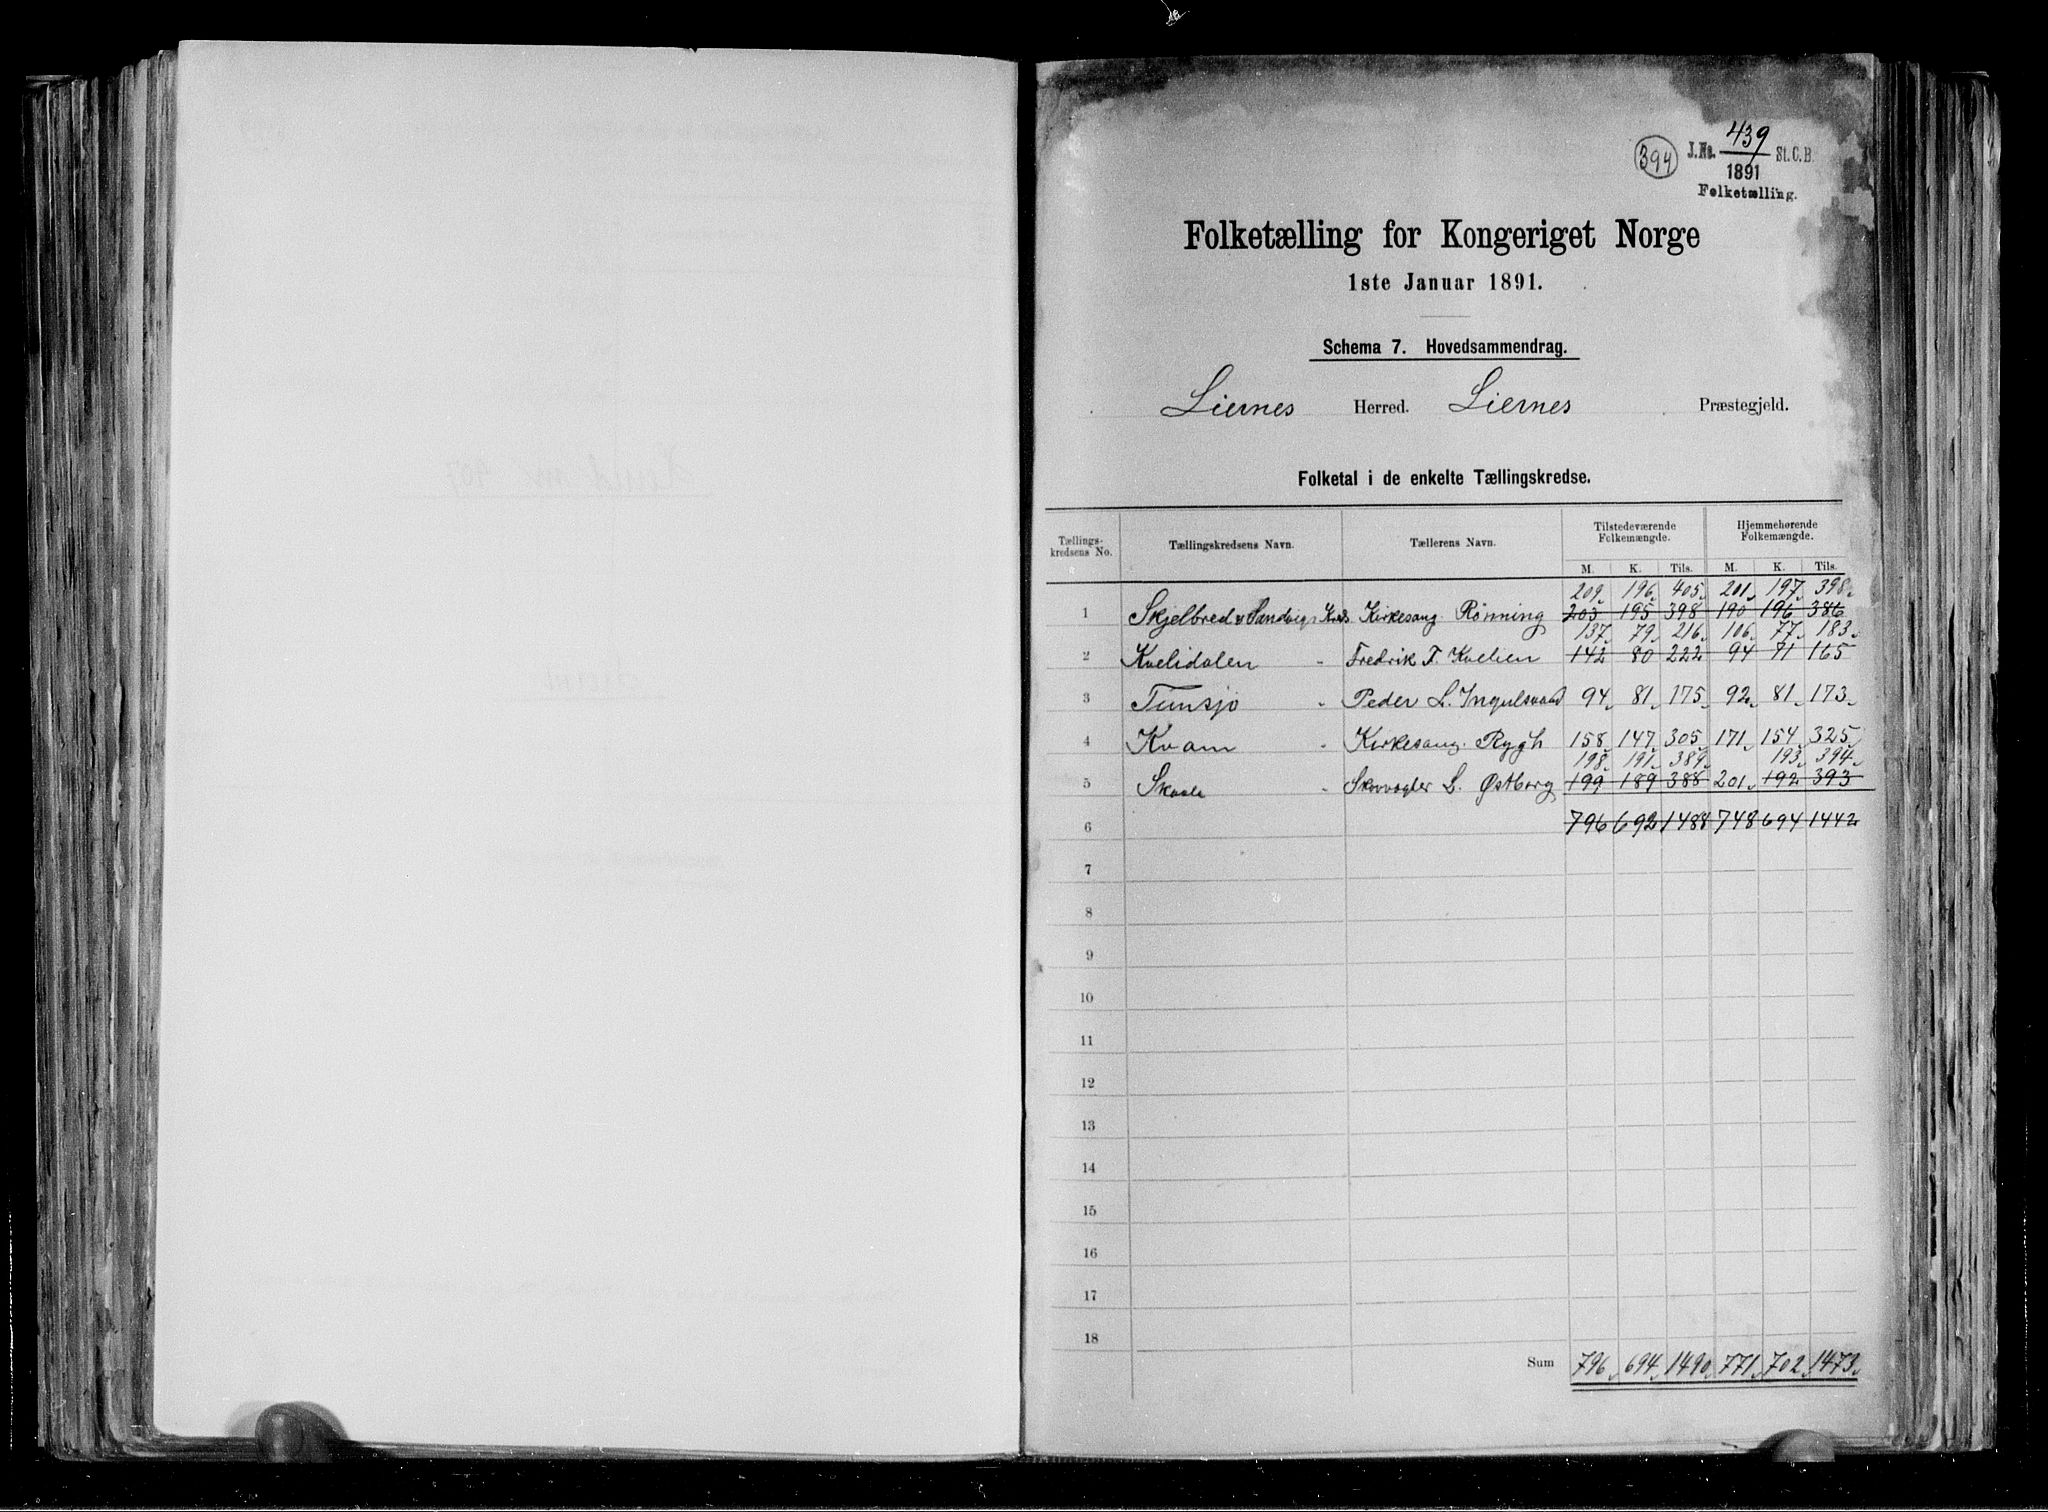 394
J.No. 439 St.C.B.
1891
Folketælling.
Folketælling for Kongeriget Norge
1ste Januar 1891.
Schema 7. Hovedsammendrag.
Liernes Herred. Liernes Præstegjeld.
Folketal i de enkelte Tællingskredse.
Tællings-kredsens No. Tællingskredsens Navn. Tællerens Navn. Tilstedeværende Folkemængde. Hjemmehørende Folkemængde.
M. K. Tils. M. K. Tils.
209 196 405 201 197 398
1 Skjelbred & Sandvigs Kreds Kirkesang. Rönning 203 195 398 190 196 386
137 79 216 106 77 183
2 Kvelidalen " Fredrik T. Kvelien 142 80 222 94 71 165
3 Tunsjø " Peder L. Ingulsvaad 94 81 175 92 81 173
4 Kvam " Kirkesang. Rygh 158 147 305 171 154 325
198 191 389 193 394
5 Skaale " Skovvogter L. Østborg 199 189 388 201 192 393
6 796 692 1488 748 694 1442
7
8
9
10
11
12
13
14
15
16
17
18
Sum 796 694 1490 771 702 1473